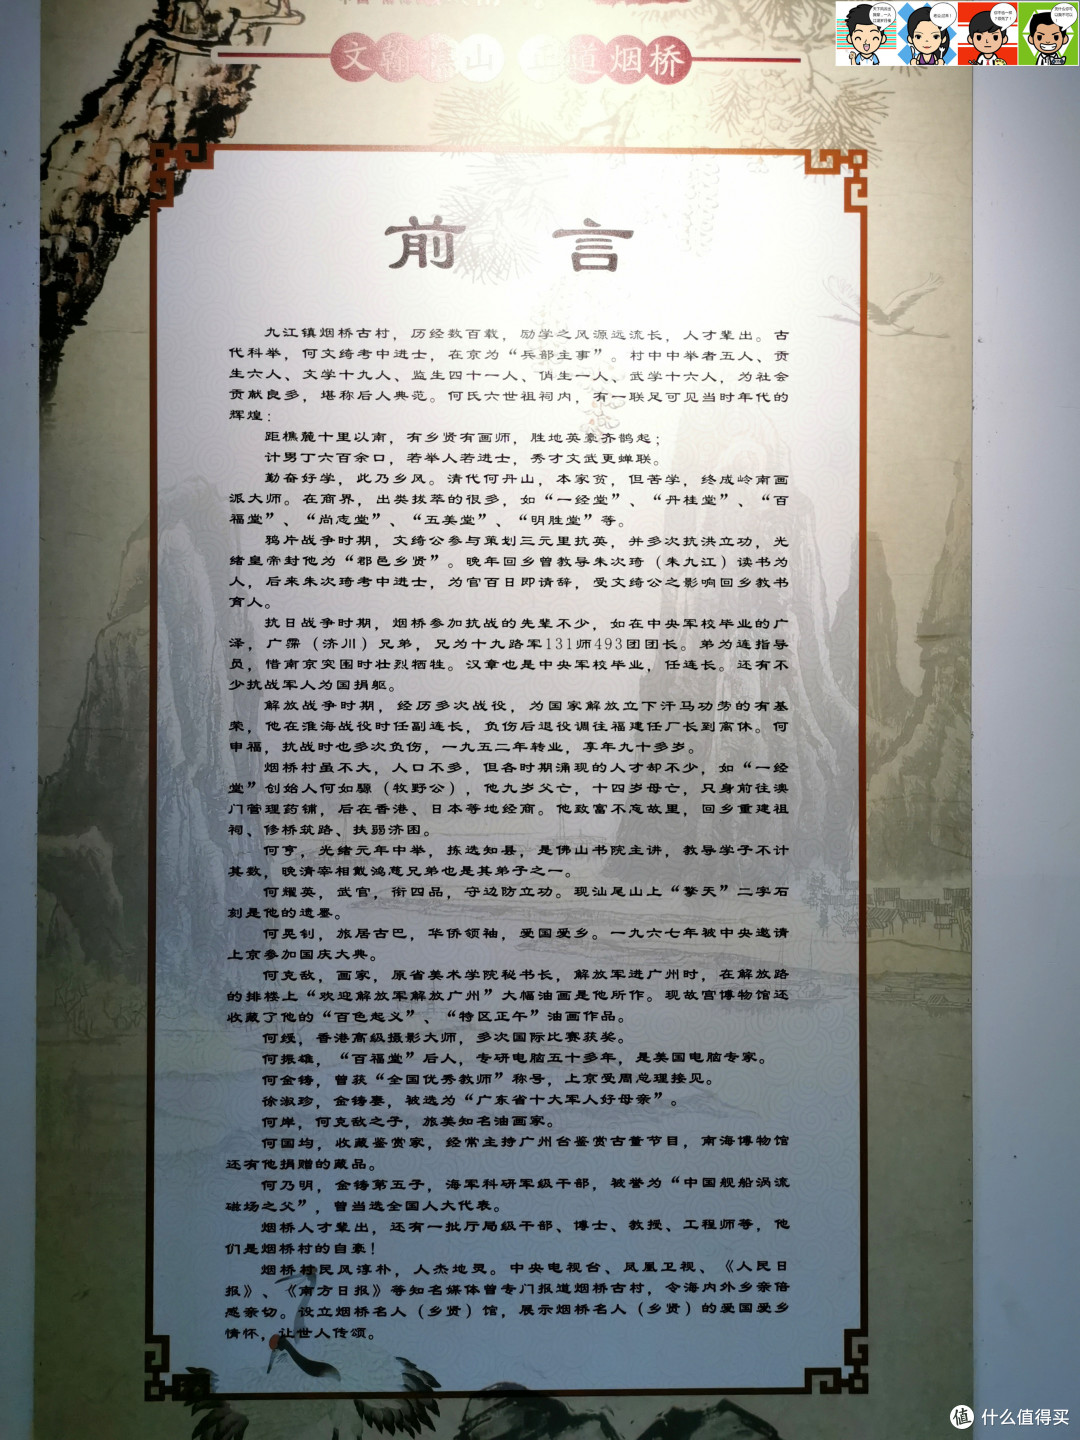 文翰 山 道烟桥
前言
九江镇烟桥古村，历经数百载，励学之风源远流长，人才辈出。古
代科举，何文绮考中进士，在京为“兵部主事”。村中中举者五人、贡
生六人、文学十九人、监生四十一人、俏生一人、武学十六人，为社会
贡献良多，堪称后人典范。何氏六世祖祠内，有一联足可见当时年代的
辉煌：
距樵麓十里以南，有乡贤有画师，胜地英豪齐鹊起；
计男丁六百余口，若举人若进士，秀才文武更蝉联。
勤奋好学，此乃乡风。清代何丹山，本家贫，但苦学，终成岭南画
派大师。在商界，出类拔萃的很多，如“一经堂”、“丹桂堂”、“百
福堂”、“尚志堂”、“五美堂”、“明胜堂”等。
鸦片战争时期，文绮公参与策划三元里抗英，并多次抗洪立功，光
绪皇帝封他为“郡邑乡贤”。晚年回乡曾教导朱次琦（朱九江）读书为
人，后来朱次琦考中进士，为官百日即请辞，受文绮公之影响回乡教书
育人。
抗日战争时期，烟桥参加抗战的先辈不少，如在中央军校毕业的广
泽，广霈（济川）兄弟，兄为十九路军131师493团团长。弟为连指导
员，惜南京突围时壮烈牺牲。汉章也是中央军校毕业，任连长。还有不
少抗战军人为国捐躯。
解放战争时期，经历多次战役，为国家解放立下汗马功劳的有基
荣，他在淮海战役时任副连长，负伤后退役调往福建任厂长到离休。何
申福，抗战时也多次负伤，一九五二年转业，享年九十多岁。
烟桥村虽不大，人口不多，但各时期涌现的人才却不少，如“一经
堂”创始人何如骠（牧野公），他九岁父亡，十四岁母亡，只身前往澳
门管理药铺，后在香港、日本等地经商。他致富不忘故里，回乡重建祖
祠、修桥筑路、扶弱济困。
何亨，光绪元年中举，拣选知县，是佛山书院主讲，教导学子不计
其数，晚清宰相戴鸿慈兄弟也是其弟子之一。
何耀英，武官，衔四品，守边防立功。现汕尾山上“擎天”二字石
刻是他的遗墨。
何晃钊，旅居古巴，华侨领袖，爱国爱乡。一九六七年被中央邀请
上京参加国庆大典。
何克敌，画家，原省美术学院秘书长，解放军进广州时，在解放路
的排楼上“欢迎解放军解放广州”大幅油画是他所作。现故宫博物馆还
收藏了他的“百色起义”、“特区正午”油画作品。
何绥，香港高级摄影大师，多次国际比赛获奖。
何振雄，“百福堂”后人，专研电脑五十多年，是美国电脑专家。
何金铸，曾获“全国优秀教师”称号，上京受周总理接见。
徐淑珍，金铸妻，被选为“广东省十大军人好母亲”。
何岸，何克敌之子，旅美知名油画家。
何国均，收藏鉴赏家，经常主持广州台鉴赏古董节目，南海博物馆
还有他捐赠的藏品。
何乃明，金铸第五子，海军科研军级干部，被誉为“中国舰船涡流
磁场之父”，曾当选全国人大代表。
烟桥人才辈出，还有一批厅局级干部、博士、教授、工程师等，他
们是烟桥村的自豪！
烟桥村民风淳朴，人杰地灵。中央电视台、凤凰卫视、《人民日
报》、《南方日报》等知名媒体曾专门报道烟桥古村，令海内外乡亲倍
感亲切。设立烟桥名人（乡贤）馆，展示烟桥名人（乡贤）的爱国爱乡
情怀，让世人传颂。
值 什么值得买